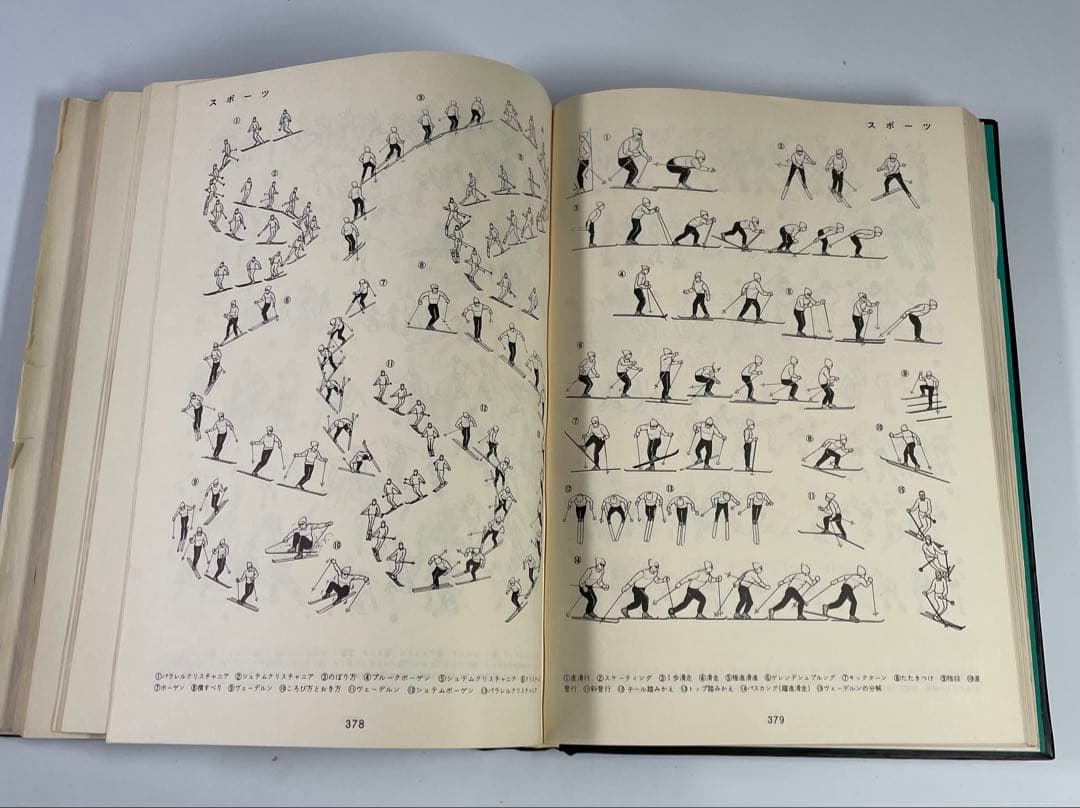 スポーツ
① ② ③ ⑥ ⑦ ⑧ ⑨ ⑩ ⑪ ⑫
①パラレルクリスチャニア ②シュテムクリスチャニア ③のぼり方 ④プルークボーゲン ⑤シュテムクリスチャニア
⑦ボーゲン ⑧横すべり ⑨ヴェーデルン ⑩ころび方とおき方 ⑪ヴェーデルン ⑫シュテムボーゲン ⑬パラレルクリスチャニア
378
スポーツ
① ②
③
④ ⑤
⑥ ⑨
⑦ ⑧ ⑩
⑫ ⑬ ⑪ ⑮
⑭
①直滑行 ②スケーティング ③1歩滑走 ④滑走 ⑤推進滑進 ⑥ゲレンデシュプルング ⑦キックターン ⑧たたきつけ ⑨階段 ⑩直
登行 ⑪斜登行 ⑫テール踏みかえ ⑬トップ踏みかえ ⑭パスカング(躍進滑走) ⑮ヴェーデルンの分解
379